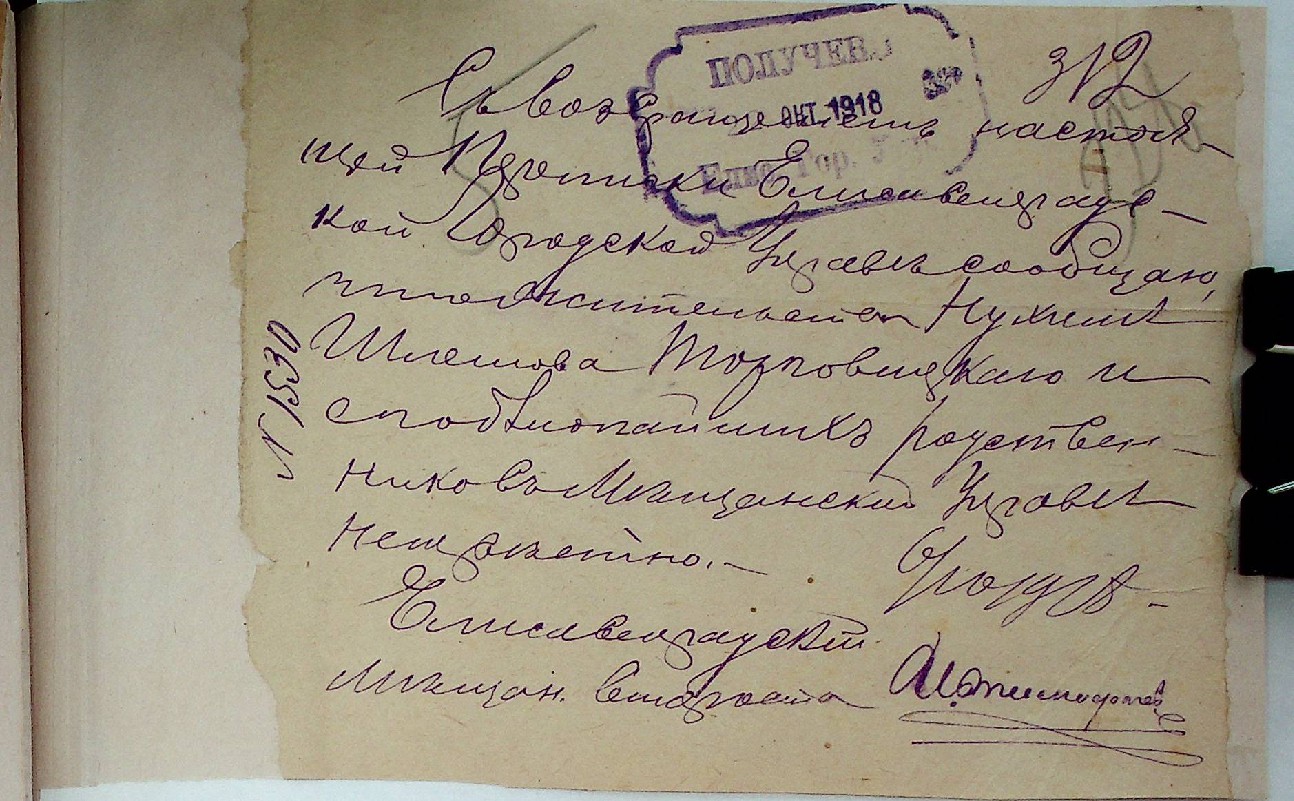 312
ПОЛУЧЕНО
ОКТ. 1918
Елис. Гор.
Съ возвращенiемъ настоя-
щей Переписки Елисаветградс-
кой Городской Управѣ сообщаю,
что жительство Нухима
Шлемова Торговицкаго и
его ближайшихъ родствен-
никовъ Мѣщанской Управѣ
неизвѣстно.-
Елисаветградскiй
Мѣщан. Староста
№ 1530